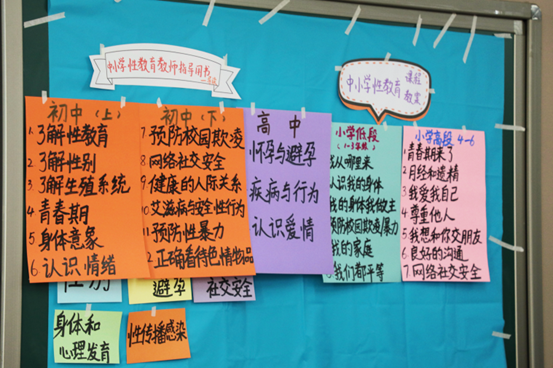 中小学性教育教师指导用书
中小学性教育
课程
初中（上）
1.了解性教育
2了解性别
3了解生殖系统
4青春期
5身体意象
6.认识情绪
初中（下）
7预防校园欺凌
8网络社交安全
9健康的人际关系
10艾滋病与安全性行为
11预防性暴力
12正确看待色情物品
高中
怀孕与避孕
疾病与行为
认识爱情
小学低段
（1-3年级）
从哪里来
认识我的身体
我的身体我做主
预防校园欺凌/暴力
我的家庭
我们都平等
小学高段 4-6
1青春期来了
2月经和遗精
3我爱我自己
4尊重他人
5我想和你交朋友
6良好的沟通
7网络社交安全
性别
避孕
社交安全
身体和
心理发育
性传播感染